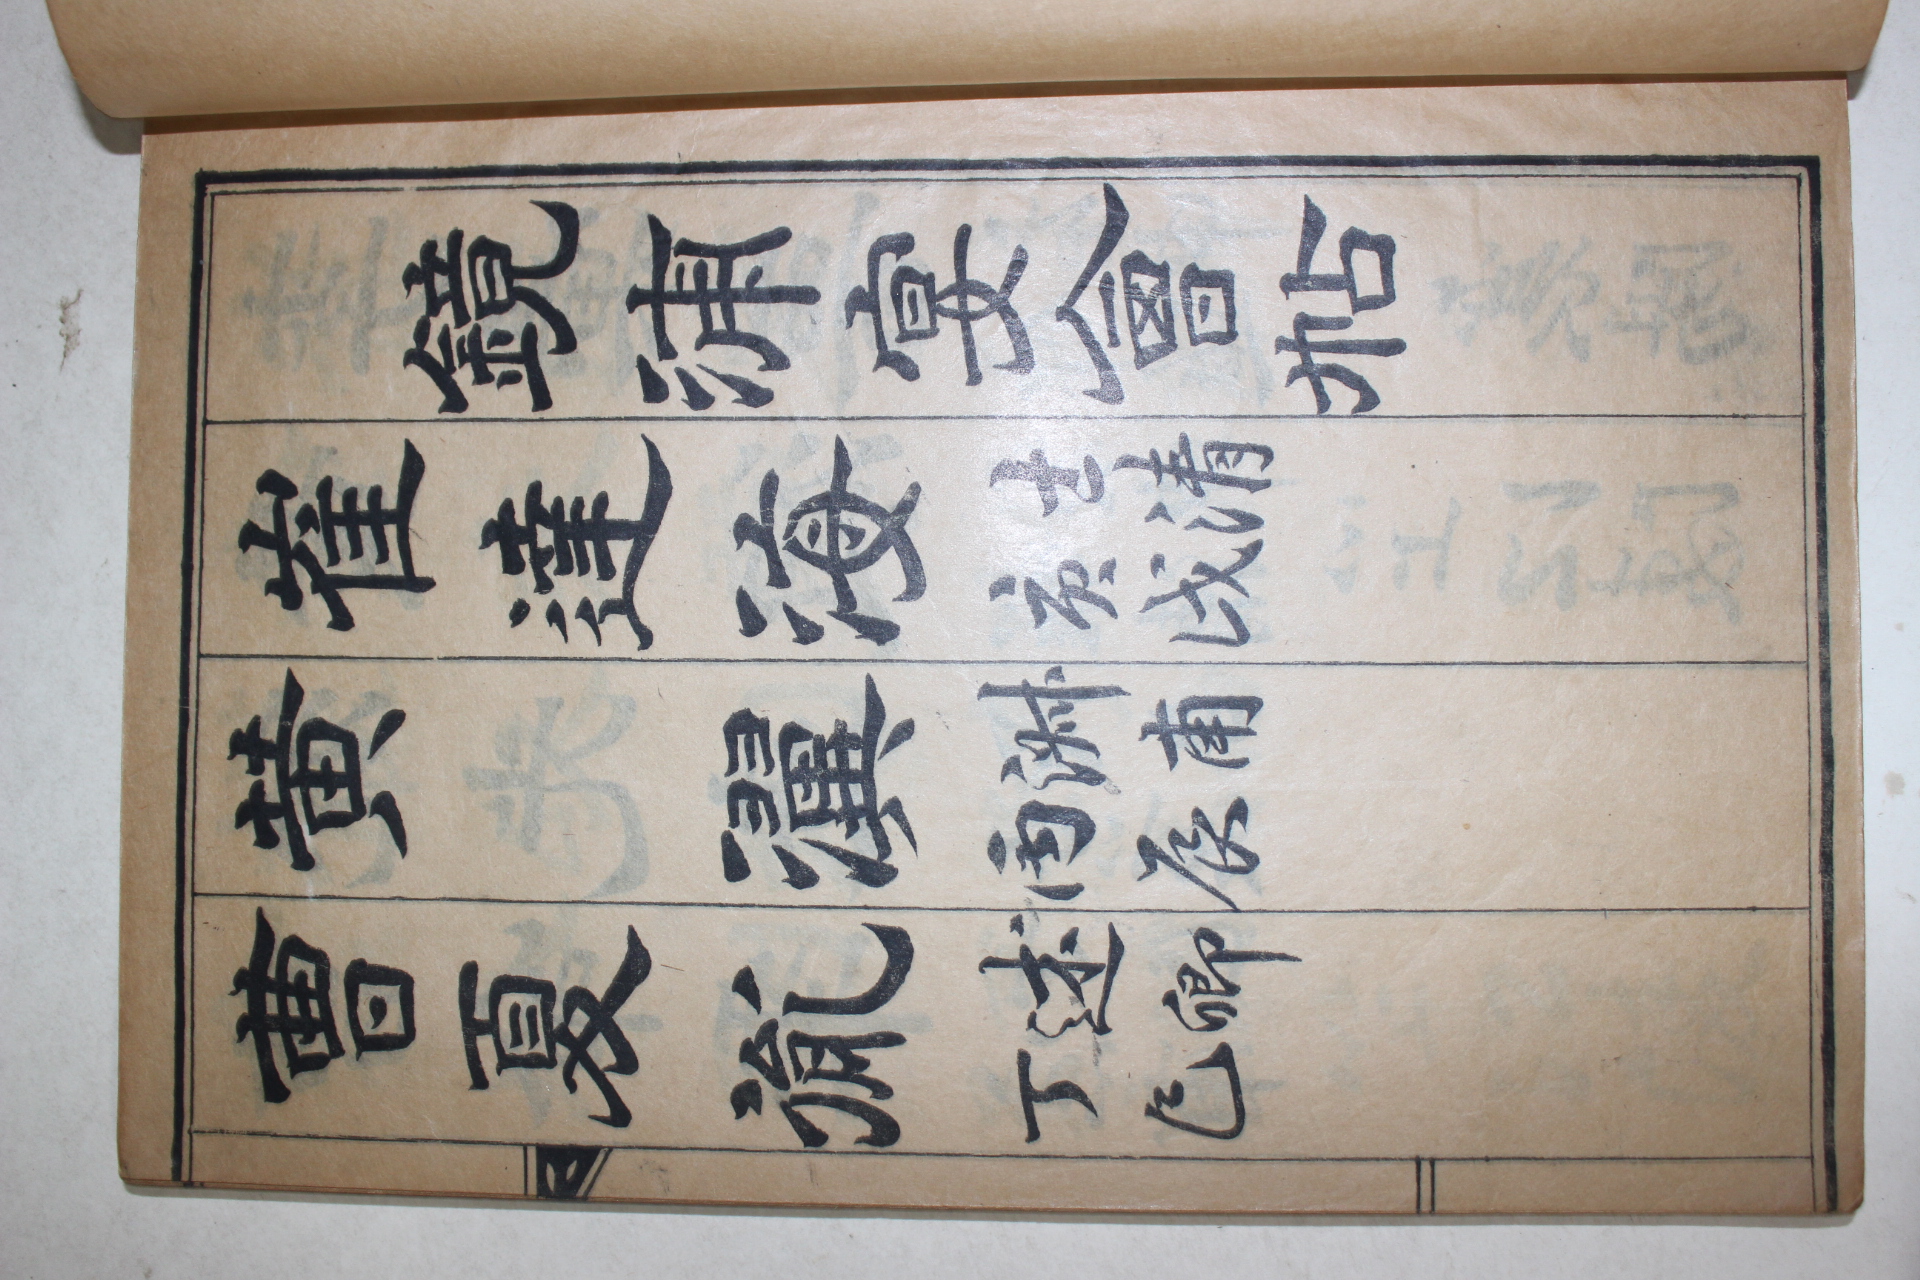 鏡浦宴會帖
崔達海 士清 庚戌
黄瀷 淵甫 丙辰
曹夏胤 述卿 丁巳